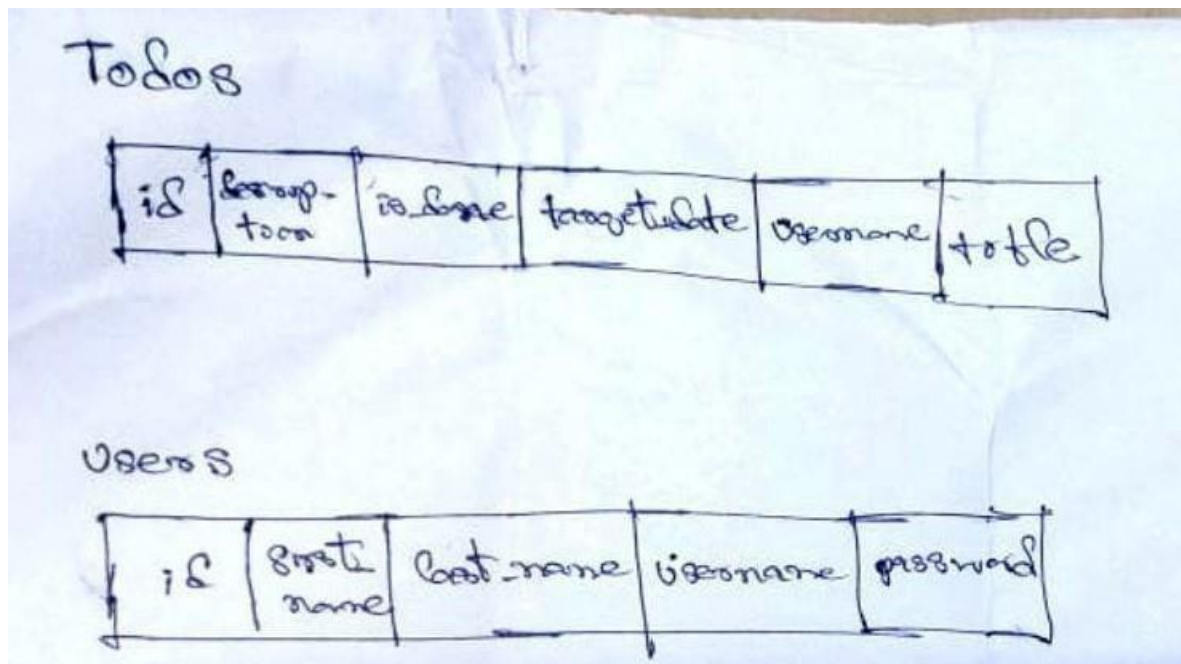 Todos
id descrip-
tion is_done target_date username title
Users
id first_
name last_name username password